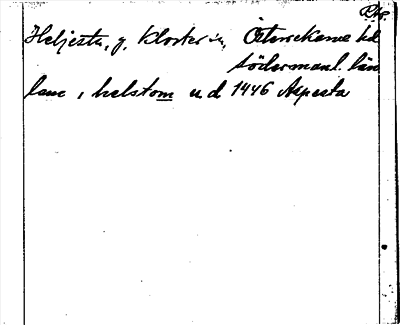 Rko.
Heljesta, g. Kloster sn, Österrekarne hd
Södermanl. län
lanc, helstom u d 1446 Aspesta